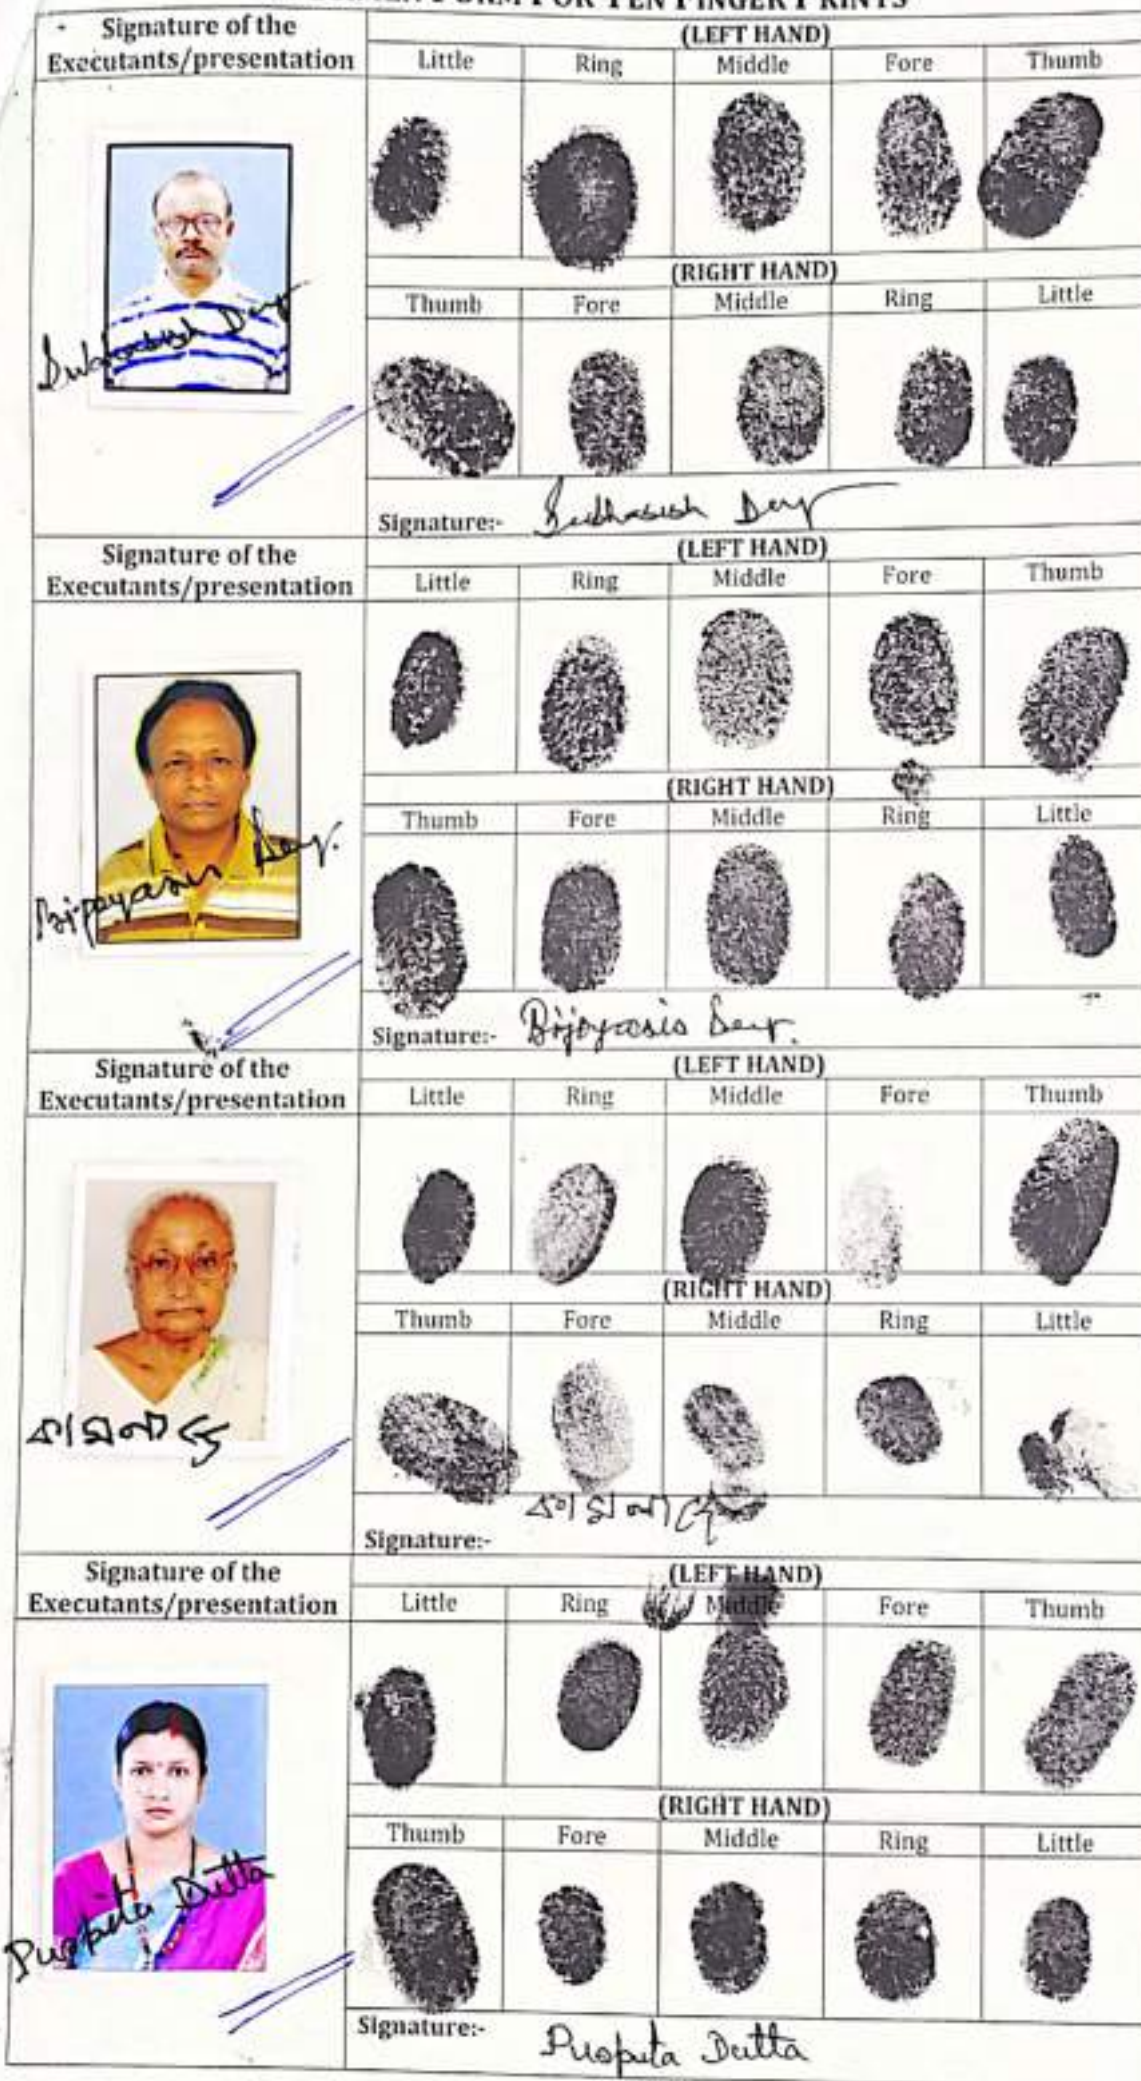 FORM FOR TEN FINGER PRINTS
Signature of the
Executants/presentation
(LEFT HAND)
Little Ring Middle Fore Thumb
Subhasish Dey
(RIGHT HAND)
Thumb Fore Middle Ring Little
Signature:- Subhasish Dey
Signature of the
Executants/presentation
(LEFT HAND)
Little Ring Middle Fore Thumb
Bijoyasis Dey.
(RIGHT HAND)
Thumb Fore Middle Ring Little
Signature:- Bijoyasis Dey.
Signature of the
Executants/presentation
(LEFT HAND)
Little Ring Middle Fore Thumb
(RIGHT HAND)
Thumb Fore Middle Ring Little
দে
Signature:- দে
Signature of the
Executants/presentation
(LEFT HAND)
Little Ring Middle Fore Thumb
Puspita Dutta
(RIGHT HAND)
Thumb Fore Middle Ring Little
Signature:- Puspita Dutta